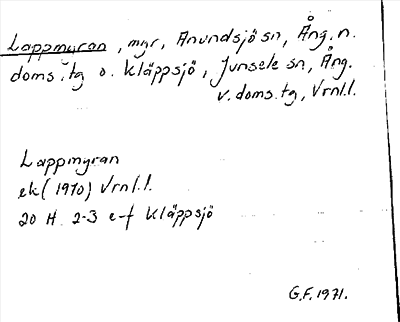 Lappmyran, myr, Anundsjö sn, Ång. n.
doms.tg o. Kläppsjö, Junsele sn, Ång.
v. doms.tg, Vrnl.l.
Lappmyran
ek (1970) Vrnl.l.
20 H 2-3 e-f Kläppsjö
G.F. 1971.